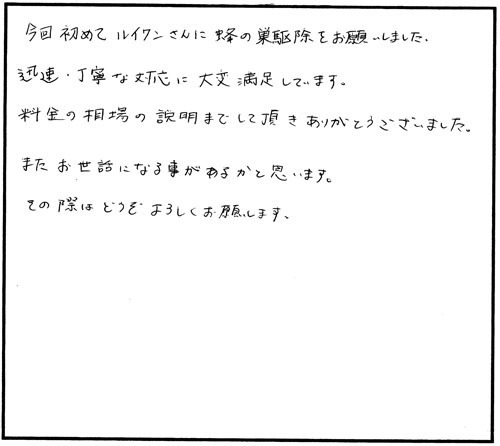 今回初めてルイワンさんに蜂の巣駆除をお願いしました.
迅速・丁寧な対応に大変満足しています。
料金の相場の説明までして頂きありがとうございました。
またお世話になる事があるかと思います。
その際はどうぞよろしくお願します、